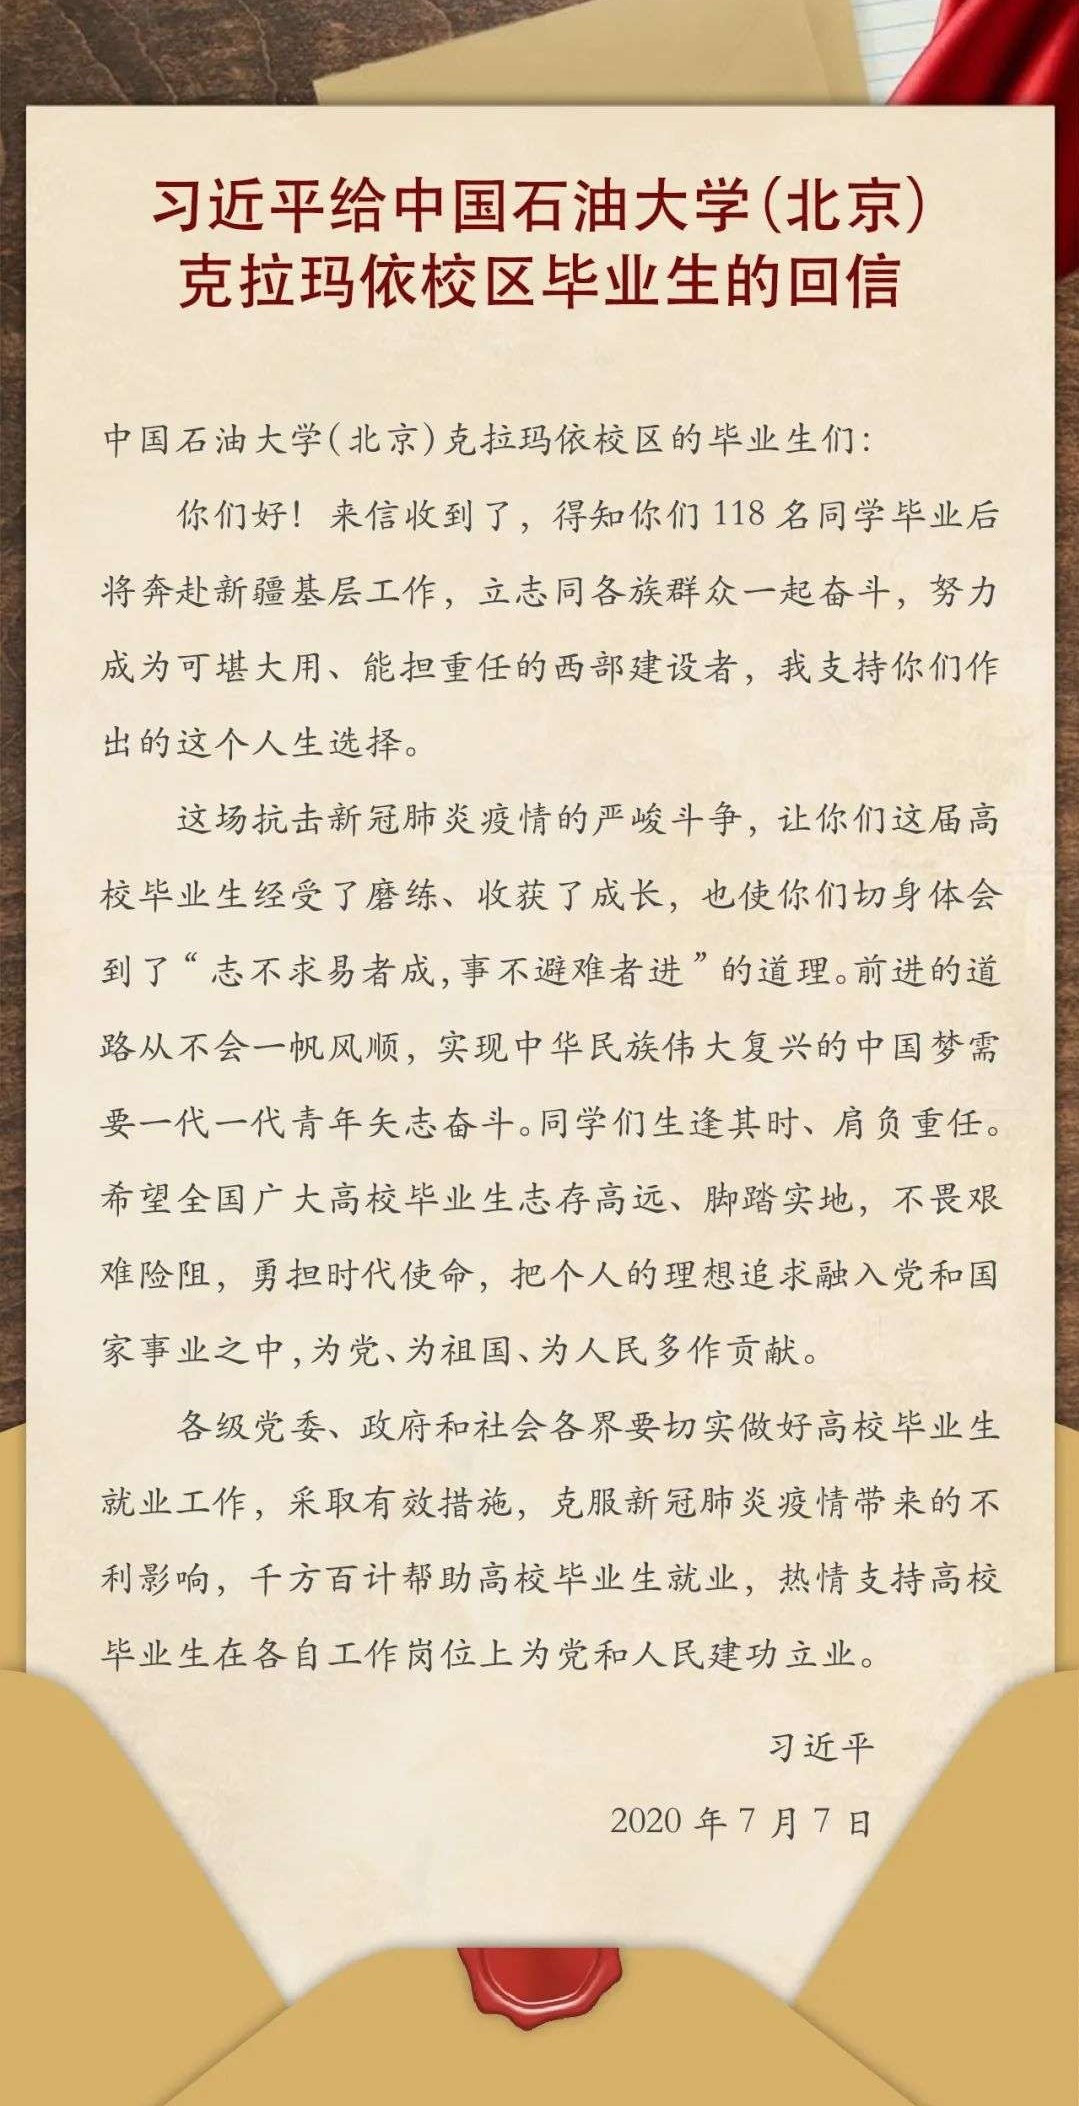 习近平给中国石油大学(北京)
克拉玛依校区毕业生的回信
中国石油大学(北京)克拉玛依校区的毕业生们：
你们好！来信收到了，得知你们118名同学毕业后
将奔赴新疆基层工作，立志同各族群众一起奋斗，努力
成为可堪大用、能担重任的西部建设者，我支持你们作
出的这个人生选择。
这场抗击新冠肺炎疫情的严峻斗争，让你们这届高
校毕业生经受了磨练、收获了成长，也使你们切身体会
到了“志不求易者成,事不避难者进”的道理。前进的道
路从不会一帆风顺，实现中华民族伟大复兴的中国梦需
要一代一代青年矢志奋斗。同学们生逢其时、肩负重任。
希望全国广大高校毕业生志存高远、脚踏实地，不畏艰
难险阻，勇担时代使命，把个人的理想追求融入党和国
家事业之中,为党、为祖国、为人民多作贡献。
各级党委、政府和社会各界要切实做好高校毕业生
就业工作，采取有效措施，克服新冠肺炎疫情带来的不
利影响，千方百计帮助高校毕业生就业，热情支持高校
毕业生在各自工作岗位上为党和人民建功立业。
习近平
2020年7月7日